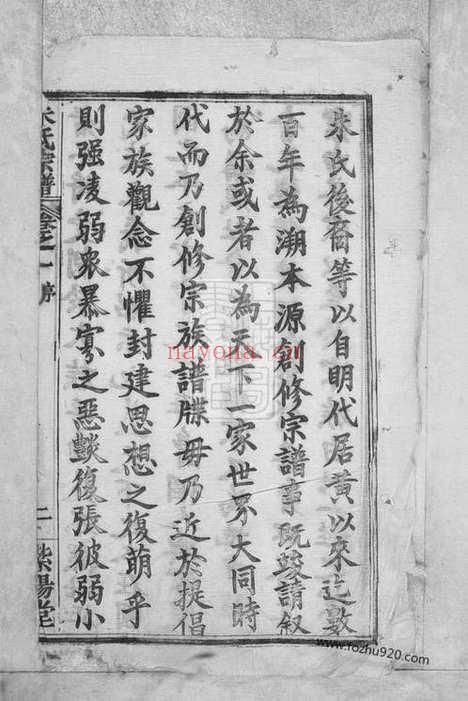 朱氏後裔等以自明代居黄以來迄數
百年為溯本源創修宗譜事既竣請叙
於余或者以為天下一家世界大同時
代而乃創修宗族譜牒毋乃近於提倡
家族觀念不懼封建思想之復萌乎
則强凌弱衆暴寡之惡燄復張彼弱小
朱氏宗譜 卷之一 序 二 紫陽堂
nayona.cn
www.fozhu920.com